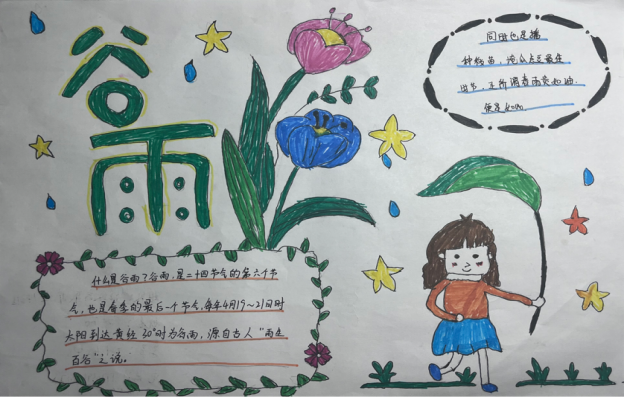 谷雨
同时也是播
种移苗、
时节,正所谓春雨贵如油,
便是
什么是谷雨?谷雨,是二十四节气的第六个节
气,也是春季的最后一个节气,每年4月19~21日时
太阳到达黄经30°时为谷雨,源自古人“雨生
百谷”之说.